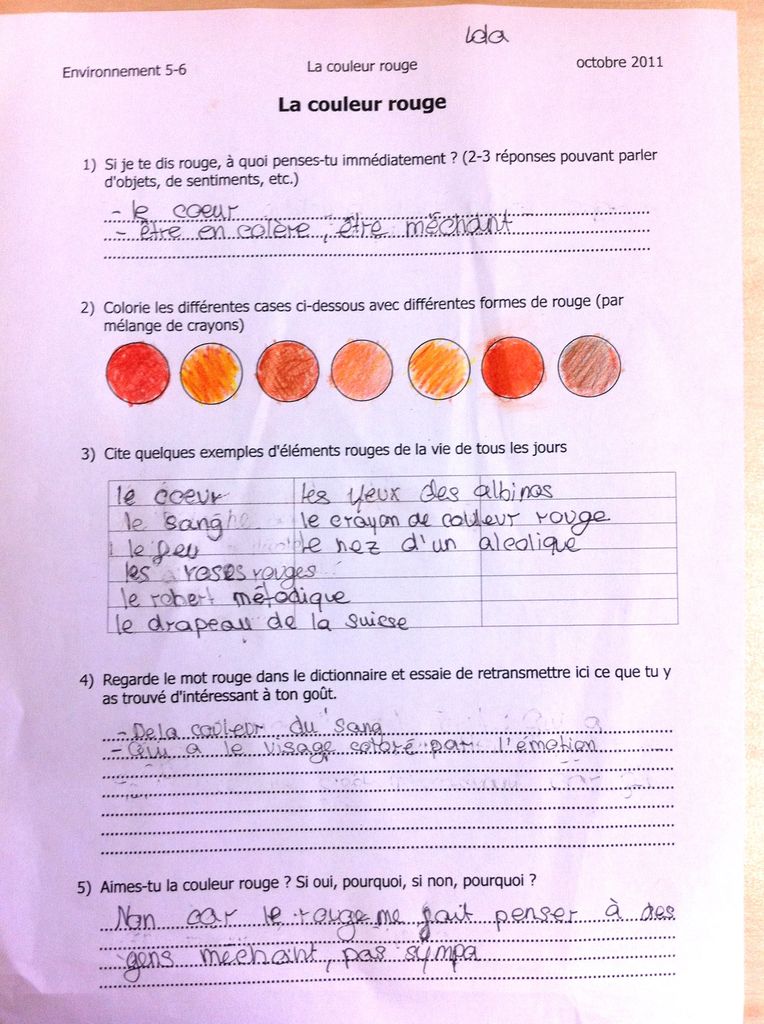 Lola
Environnement 5-6 La couleur rouge octobre 2011
La couleur rouge
1) Si je te dis rouge, à quoi penses-tu immédiatement ? (2-3 réponses pouvant parler
d'objets, de sentiments, etc.)
- le coeur
- être en colère, être méchant
2) Colorie les différentes cases ci-dessous avec différentes formes de rouge (par
mélange de crayons)
3) Cite quelques exemples d'éléments rouges de la vie de tous les jours
le coeur les yeux des albinos
le sang le crayon de couleur rouge
le feu le nez d'un alcolique
les roses rouges
le robert métodique
le drapeau de la suisse
4) Regarde le mot rouge dans le dictionnaire et essaie de retransmettre ici ce que tu y
as trouvé d'intéressant à ton goût.
- De la couleur du sang
- Qui a le visage coloré par l'émotion
5) Aimes-tu la couleur rouge ? Si oui, pourquoi, si non, pourquoi ?
Non car le rouge me fait penser à des
gens méchant, pas sympa